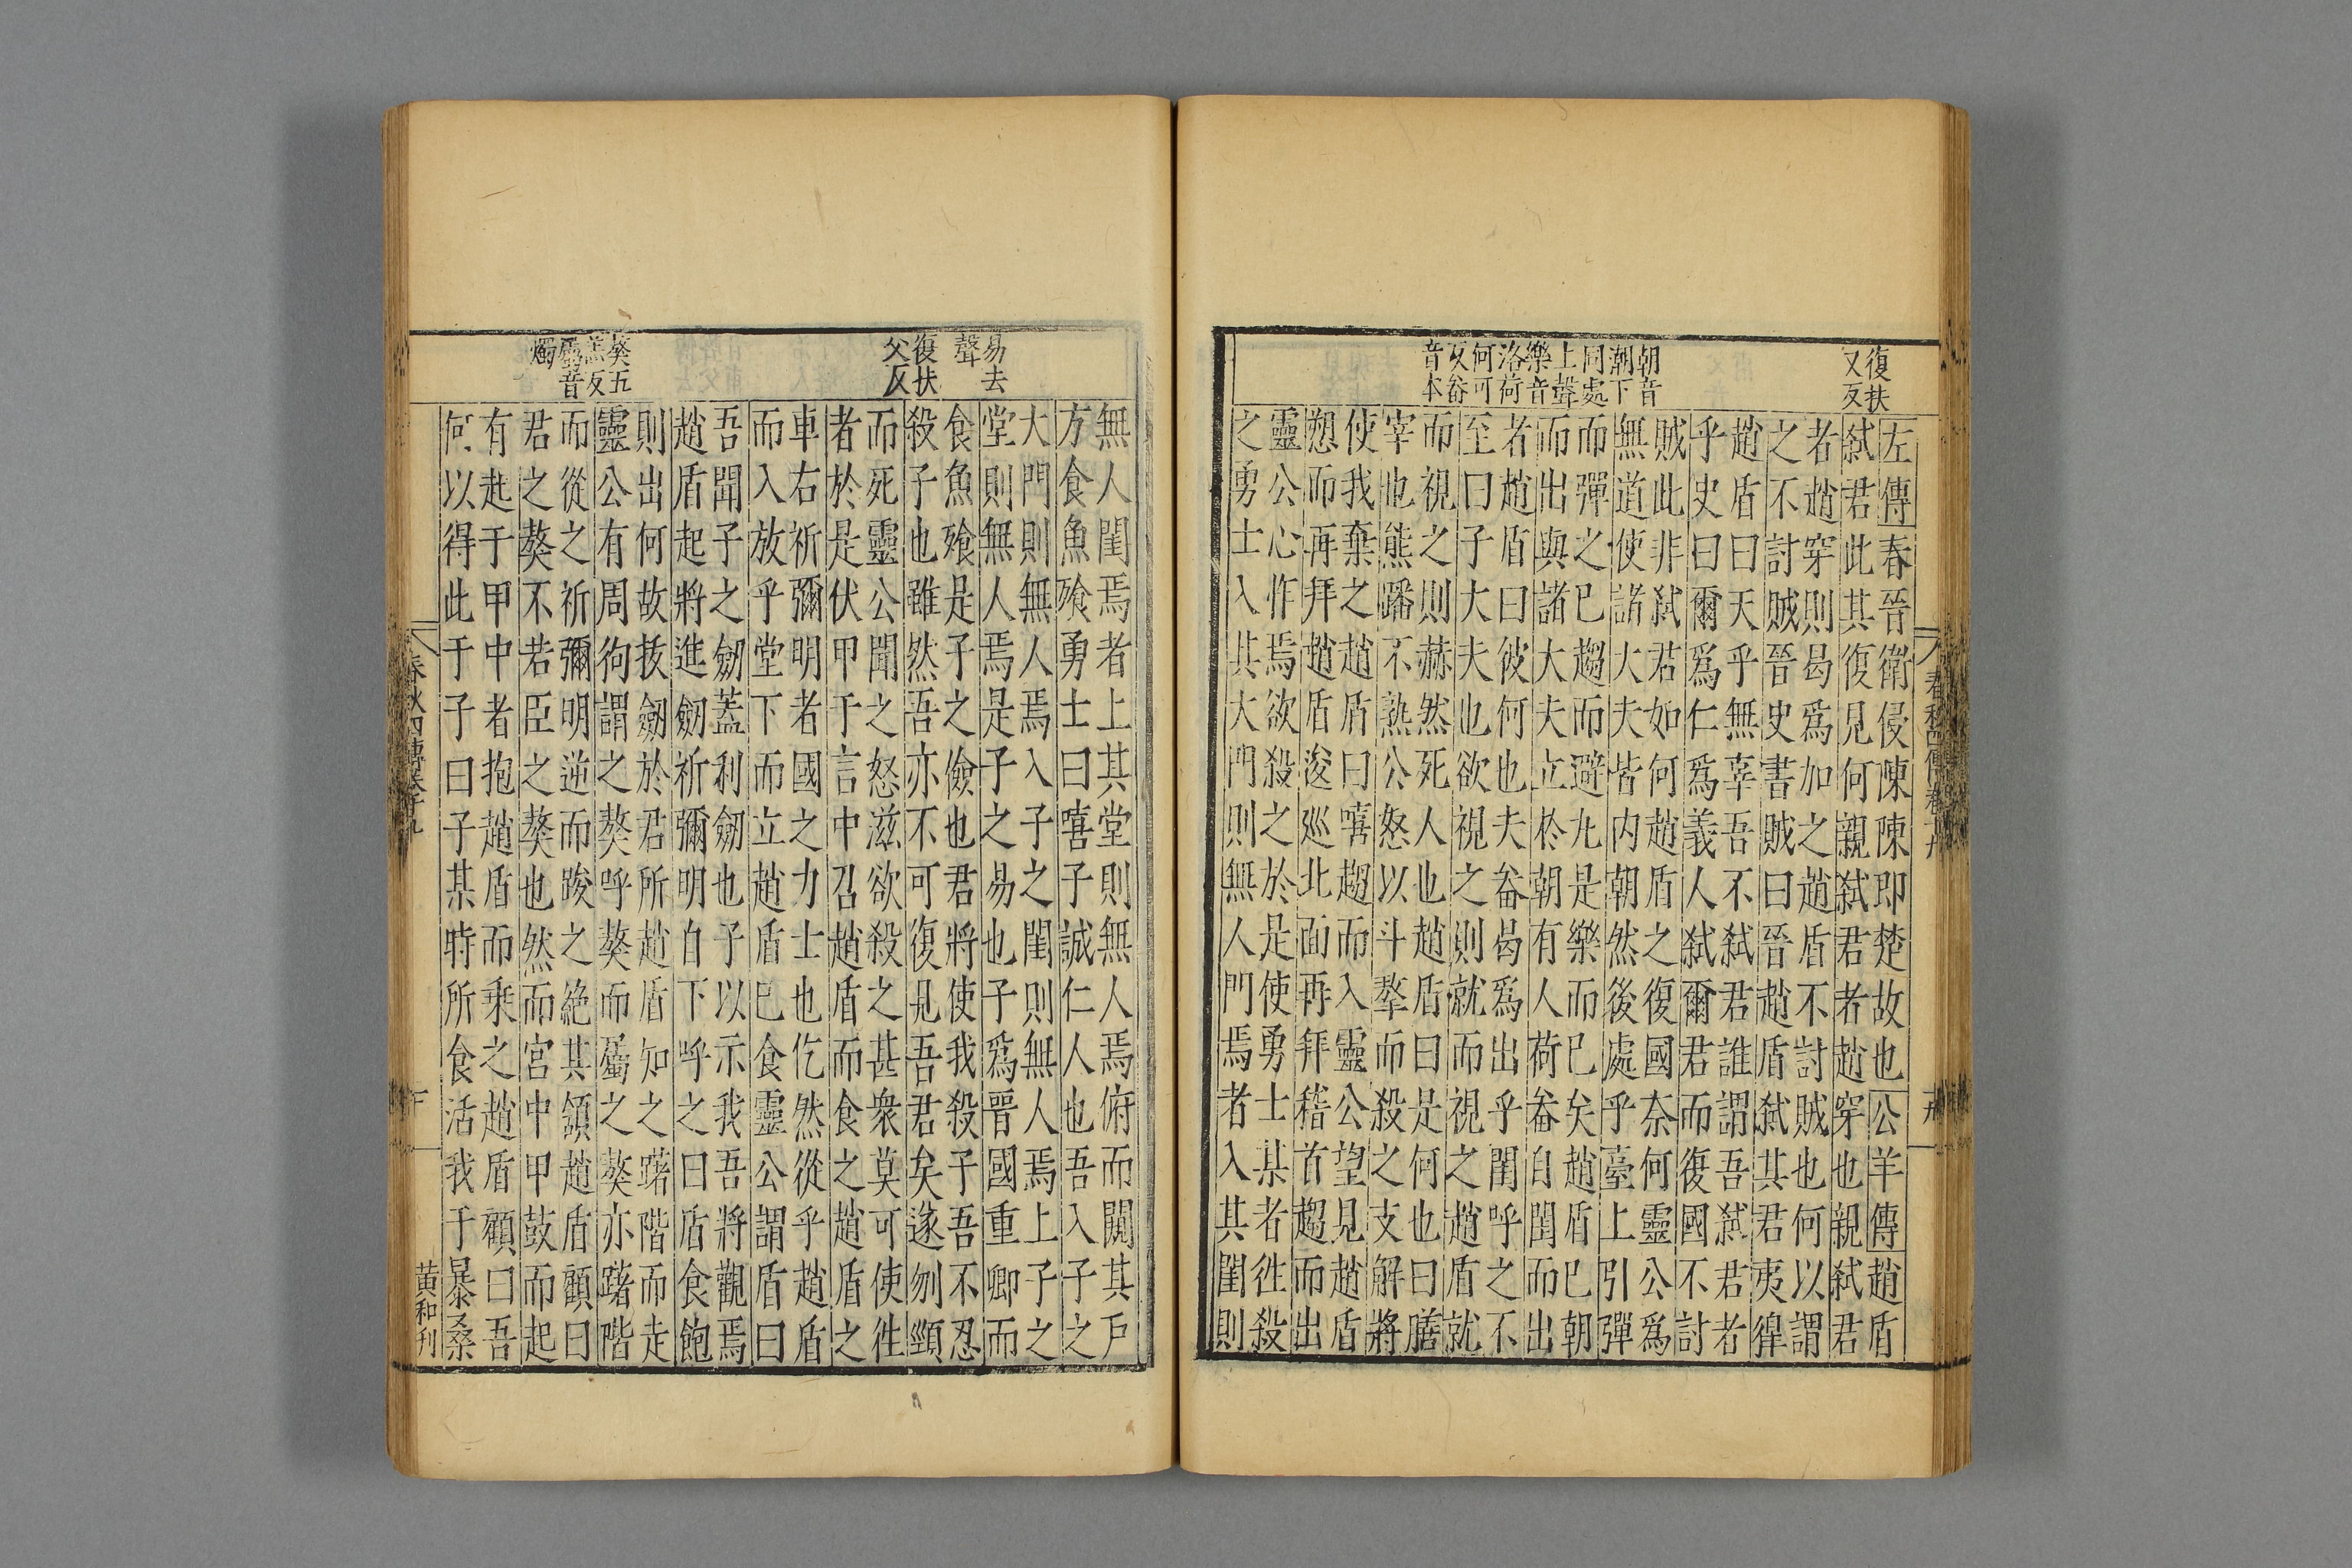 復扶
又反
朝音
潮下
同處
上聲
樂音
洛荷
何可
反畚
音本
左傳春晉衛侵陳陳即楚故也公羊傳趙盾
弑君此其復見何親弑君者趙穿也親弑君
者趙穿則曷爲加之趙盾不討賊也何以謂
之不討賊晉史書賊曰晉趙盾弑其君夷獆
趙盾曰天乎無辜吾不弑君誰謂吾弑君者
乎史曰爾爲仁爲義人弑爾君而復國不討
賊此非弑君如何趙盾之復國奈何靈公爲
無道使諸大夫皆内朝然後處乎臺上引彈
而彈之已趨而避九是樂而已矣趙盾已朝
而出與諸大夫立於朝有人荷畚自閨而出
者趙盾曰彼何也夫畚曷爲出乎閨呼之不
至曰子大夫也欲視之則就而視之趙盾就
而視之則赫然死人也趙盾曰是何也曰膳
宰也熊蹯不熟公怒以斗摮而殺之支解將
使我棄之趙盾曰嘻趨而入靈公望見趙盾
愬而再拜趙盾逡巡北面再拜稽首趨而出
靈公心怍焉欲殺之於是使勇士某者往殺
之勇士入其大門則無人門焉者入其閨則
易去
聲
復扶
父反
獒五
羔反
屬音
燭
無人閨焉者上其堂則無人焉俯而闚其戶
方食魚飱勇士曰嘻子誠仁人也吾入子之
大門則無人焉入子之閨則無人焉上子之
堂則無人焉是子之易也子爲晉國重卿而
食魚飱是子之儉也君將使我殺子吾不忍
殺子也雖然吾亦不可復見吾君矣遂刎頸
而死靈公聞之怒滋欲殺之甚衆莫可使往
者於是伏甲于言中召趙盾而食之趙盾之
車右祈彌明者國之力士也仡然從乎趙盾
而入放乎堂下而立趙盾已食靈公謂盾曰
吾聞子之劒蓋利劒也子以示我吾將觀焉
趙盾起將進劒祈彌明自下呼之曰盾食飽
則出何故拔劒於君所趙盾知之躇階而走
靈公有周狗謂之獒呼獒而屬之獒亦躇階
而從之祈彌明逆而踆之絶其頷趙盾顧曰
君之獒不若臣之獒也然而宮中甲鼓而起
有起于甲中者抱趙盾而乘之趙盾顧曰吾
何以得此于子曰子某時所食活我于暴桑
春秋四傳卷十九
黃和刋